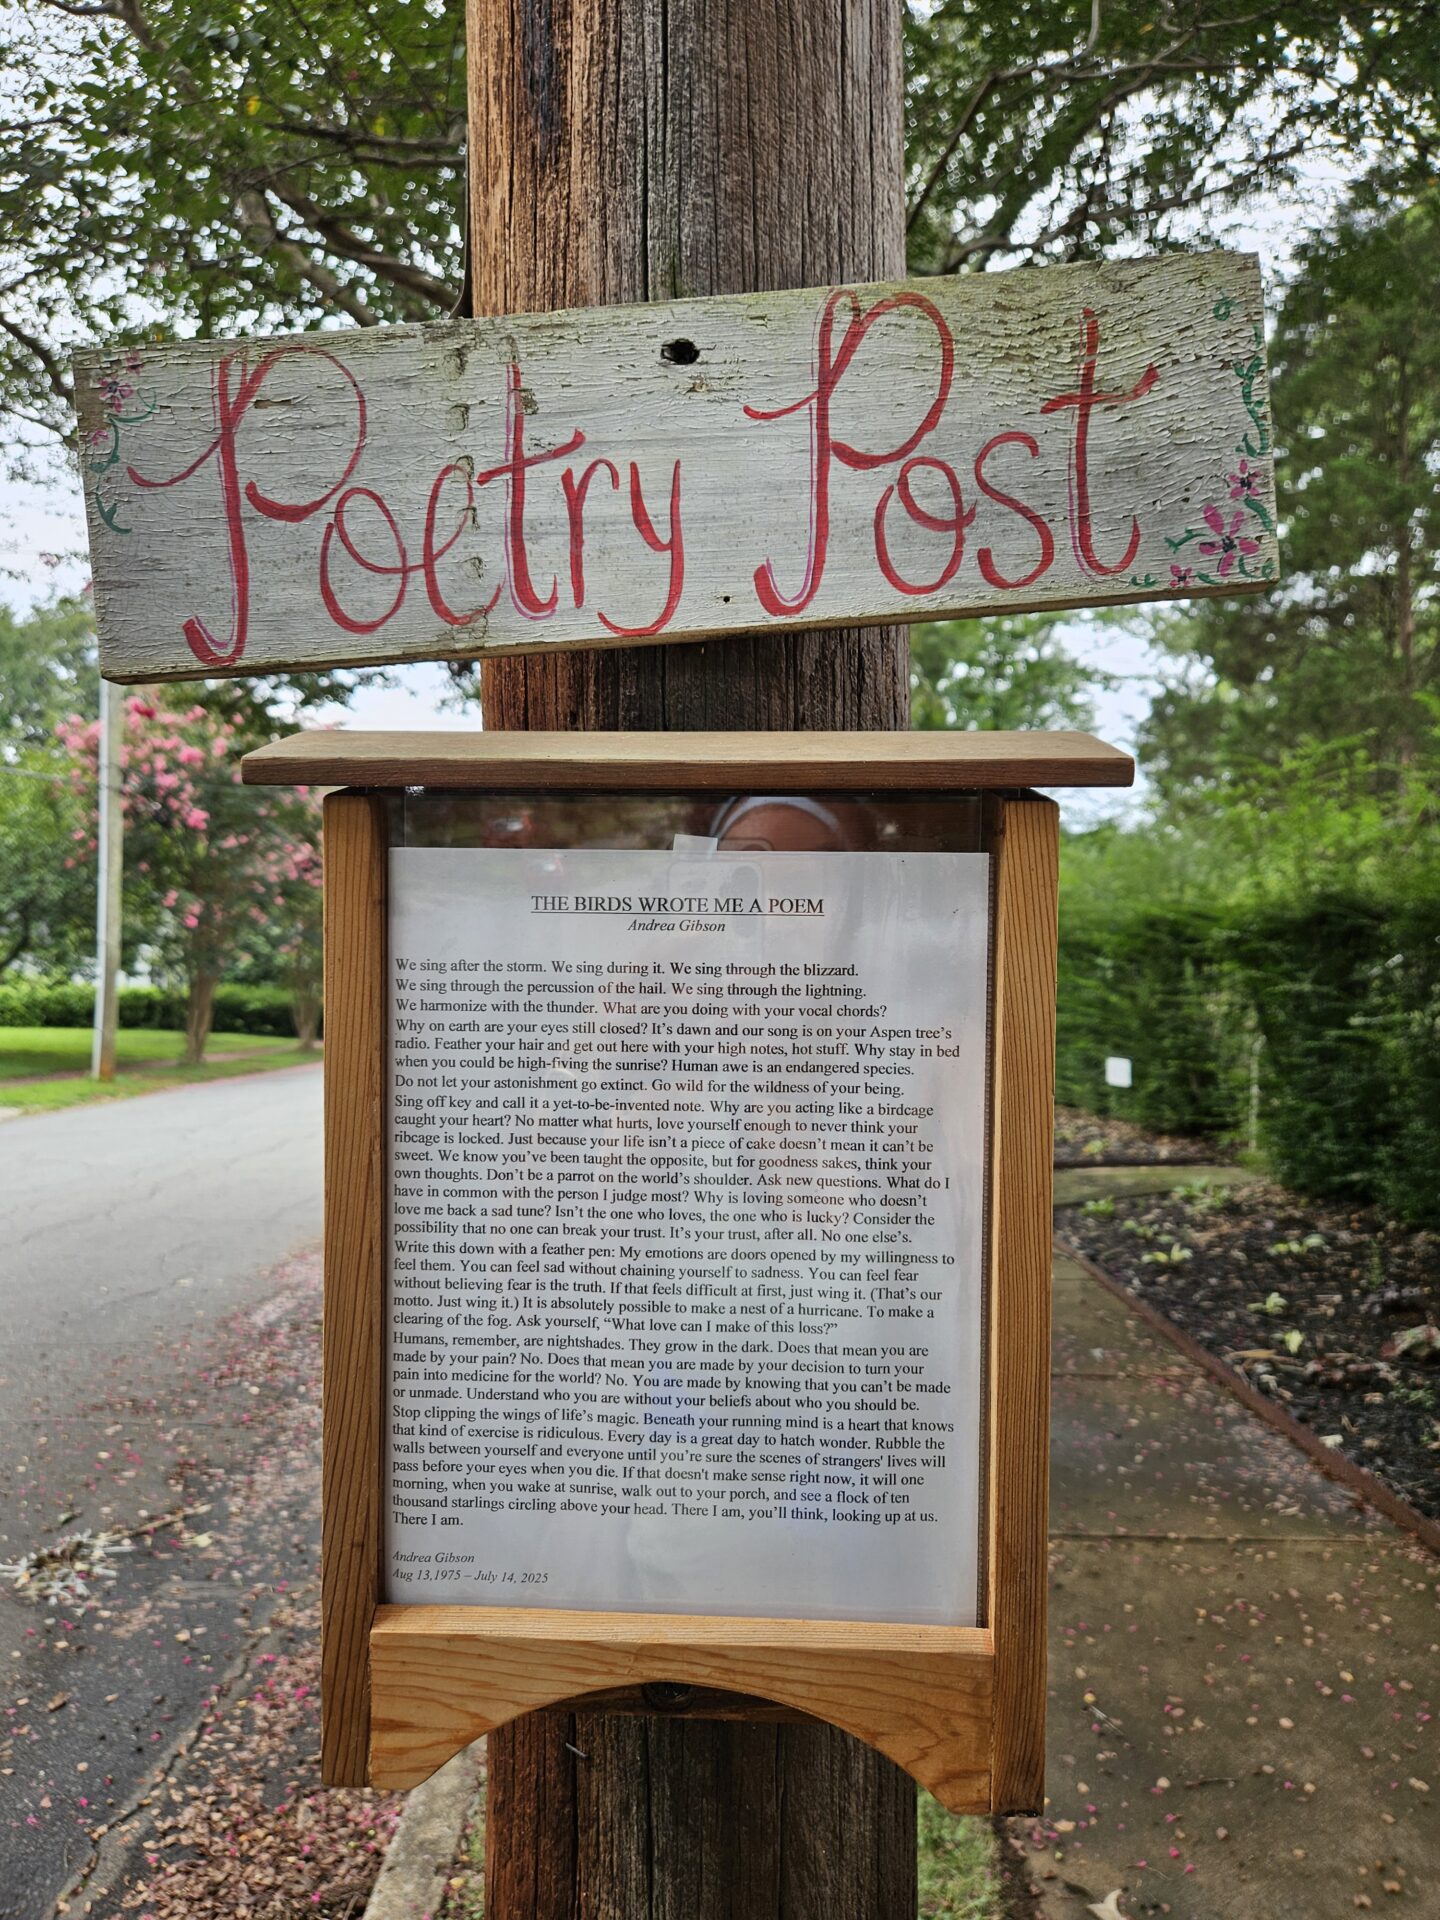 Poetry Post
THE BIRDS WROTE ME A POEM
Andrea Gibson
We sing after the storm. We sing during it. We sing through the blizzard.
We sing through the percussion of the hail. We sing through the lightning.
We harmonize with the thunder. What are you doing with your vocal chords?
Why on earth are your eyes still closed? It’s dawn and our song is on your Aspen tree’s
radio. Feather your hair and get out here with your high notes, hot stuff. Why stay in bed
when you could be high-fiving the sunrise? Human awe is an endangered species.
Do not let your astonishment go extinct. Go wild for the wildness of your being.
Sing off key and call it a yet-to-be-invented note. Why are you acting like a birdcage
caught your heart? No matter what hurts, love yourself enough to never think your
ribcage is locked. Just because your life isn’t a piece of cake doesn’t mean it can’t be
sweet. We know you’ve been taught the opposite, but for goodness sakes, think your
own thoughts. Don’t be a parrot on the world’s shoulder. Ask new questions. What do I
have in common with the person I judge most? Why is loving someone who doesn’t
love me back a sad tune? Isn’t the one who loves, the one who is lucky? Consider the
possibility that no one can break your trust. It’s your trust, after all. No one else’s.
Write this down with a feather pen: My emotions are doors opened by my willingness to
feel them. You can feel sad without chaining yourself to sadness. You can feel fear
without believing fear is the truth. If that feels difficult at first, just wing it. (That’s our
motto. Just wing it.) It is absolutely possible to make a nest of a hurricane. To make a
clearing of the fog. Ask yourself, “What love can I make of this loss?”
Humans, remember, are nightshades. They grow in the dark. Does that mean you are
made by your pain? No. Does that mean you are made by your decision to turn your
pain into medicine for the world? No. You are made by knowing that you can’t be made
or unmade. Understand who you are without your beliefs about who you should be.
Stop clipping the wings of life’s magic. Beneath your running mind is a heart that knows
that kind of exercise is ridiculous. Every day is a great day to hatch wonder. Rubble the
walls between yourself and everyone until you’re sure the scenes of strangers' lives will
pass before your eyes when you die. If that doesn't make sense right now, it will one
morning, when you wake at sunrise, walk out to your porch, and see a flock of ten
thousand starlings circling above your head. There I am, you’ll think, looking up at us.
There I am.
Andrea Gibson
Aug 13,1975 – July 14, 2025